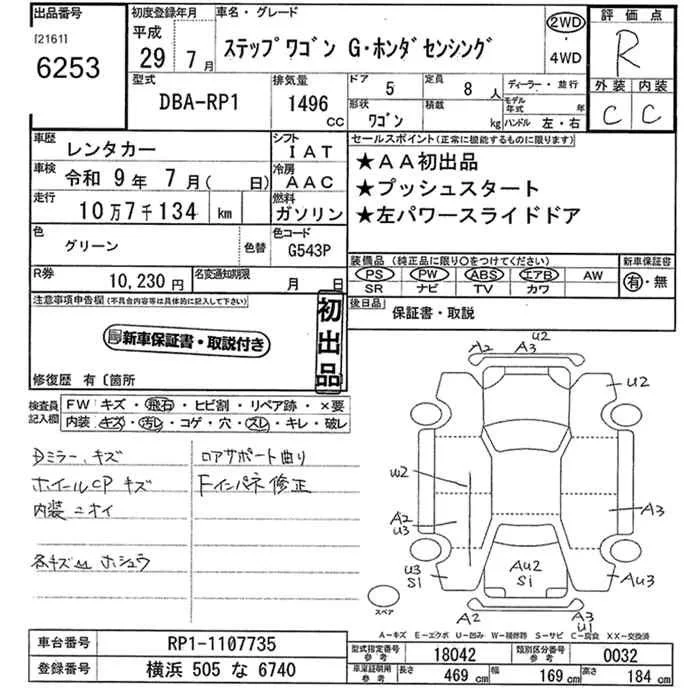 出品番号
[2161]
6253
初度登録年月
平成
29年 7月
車名・グレード
ステップワゴン G・ホンダセンシング
2WD
・
4WD
評価点
R
外装 内装
C C
型式
DBA-RP1
排気量
1496
CC
ドア 5
定員 8人
形状 ワゴン
積載 kg
ディーラー・並行
モデル年式 年
ハンドル 左・右
車歴 レンタカー
シフト IAT
車検 令和 9年 7月( 日)
冷房 AAC
走行 10万7千134 km
燃料 ガソリン
色 グリーン
色替
色コード G543P
R券 10,230円
名変通知期限 月 日
セールスポイント(正常に機能するものに限ります)
★AA初出品
★プッシュスタート
★左パワースライドドア
装備品(純正品に限り○をつけてください)
PS PW ABS エアB AW
SR ナビ TV カワ
新車保証書
有・無
後日品 保証書・取説
注意事項申告欄(不具合内容等は具体的に記入して下さい)
新車保証書・取説付き
初出品
修復歴 有〔箇所
検査員記入欄
FW キズ・飛石・ヒビ割・リペア跡・×要
内装 キズ・汚レ・コゲ・穴・スレ・キレ・破レ
Dミラー、キズ
ロアサポート曲り
ホイールCPキズ
Fインパネ修正
内装ニオイ
各キズ凹ホシュウ
U2
A2 A3
U2
W2
A2
U3
A3
U3
S1
AU2
S1
AU3
A2 A3
U1
スペア
A−キズ E−エクボ U−凹み W−補修跡 S−サビ C−腐食 XX−交換済
車台番号 RP1-1107735
登録番号 横浜 505 な 6740
型式指定番号 参考 18042
類別区分番号 参考 0032
車庫証明用 参考 長さ 469 cm 幅 169 cm 高さ 184 cm